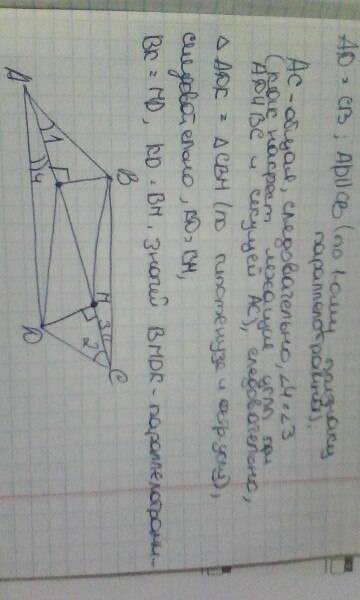 AD = CB ; AD||CB (по 1ому признаку
параллелограмма).
AC - общая, следовательно, ∠4 = ∠3
(как накрест лежащие углы при
AD||BC и секущей AC), следовательно,
△ ADK = △ CBM (по гипотенузе и остр углу),
следовательно, KD = BM,
BK = MD, KD = BM, значит BMDK - параллелограмм -
A
B
C
D
M
1
4
3
2